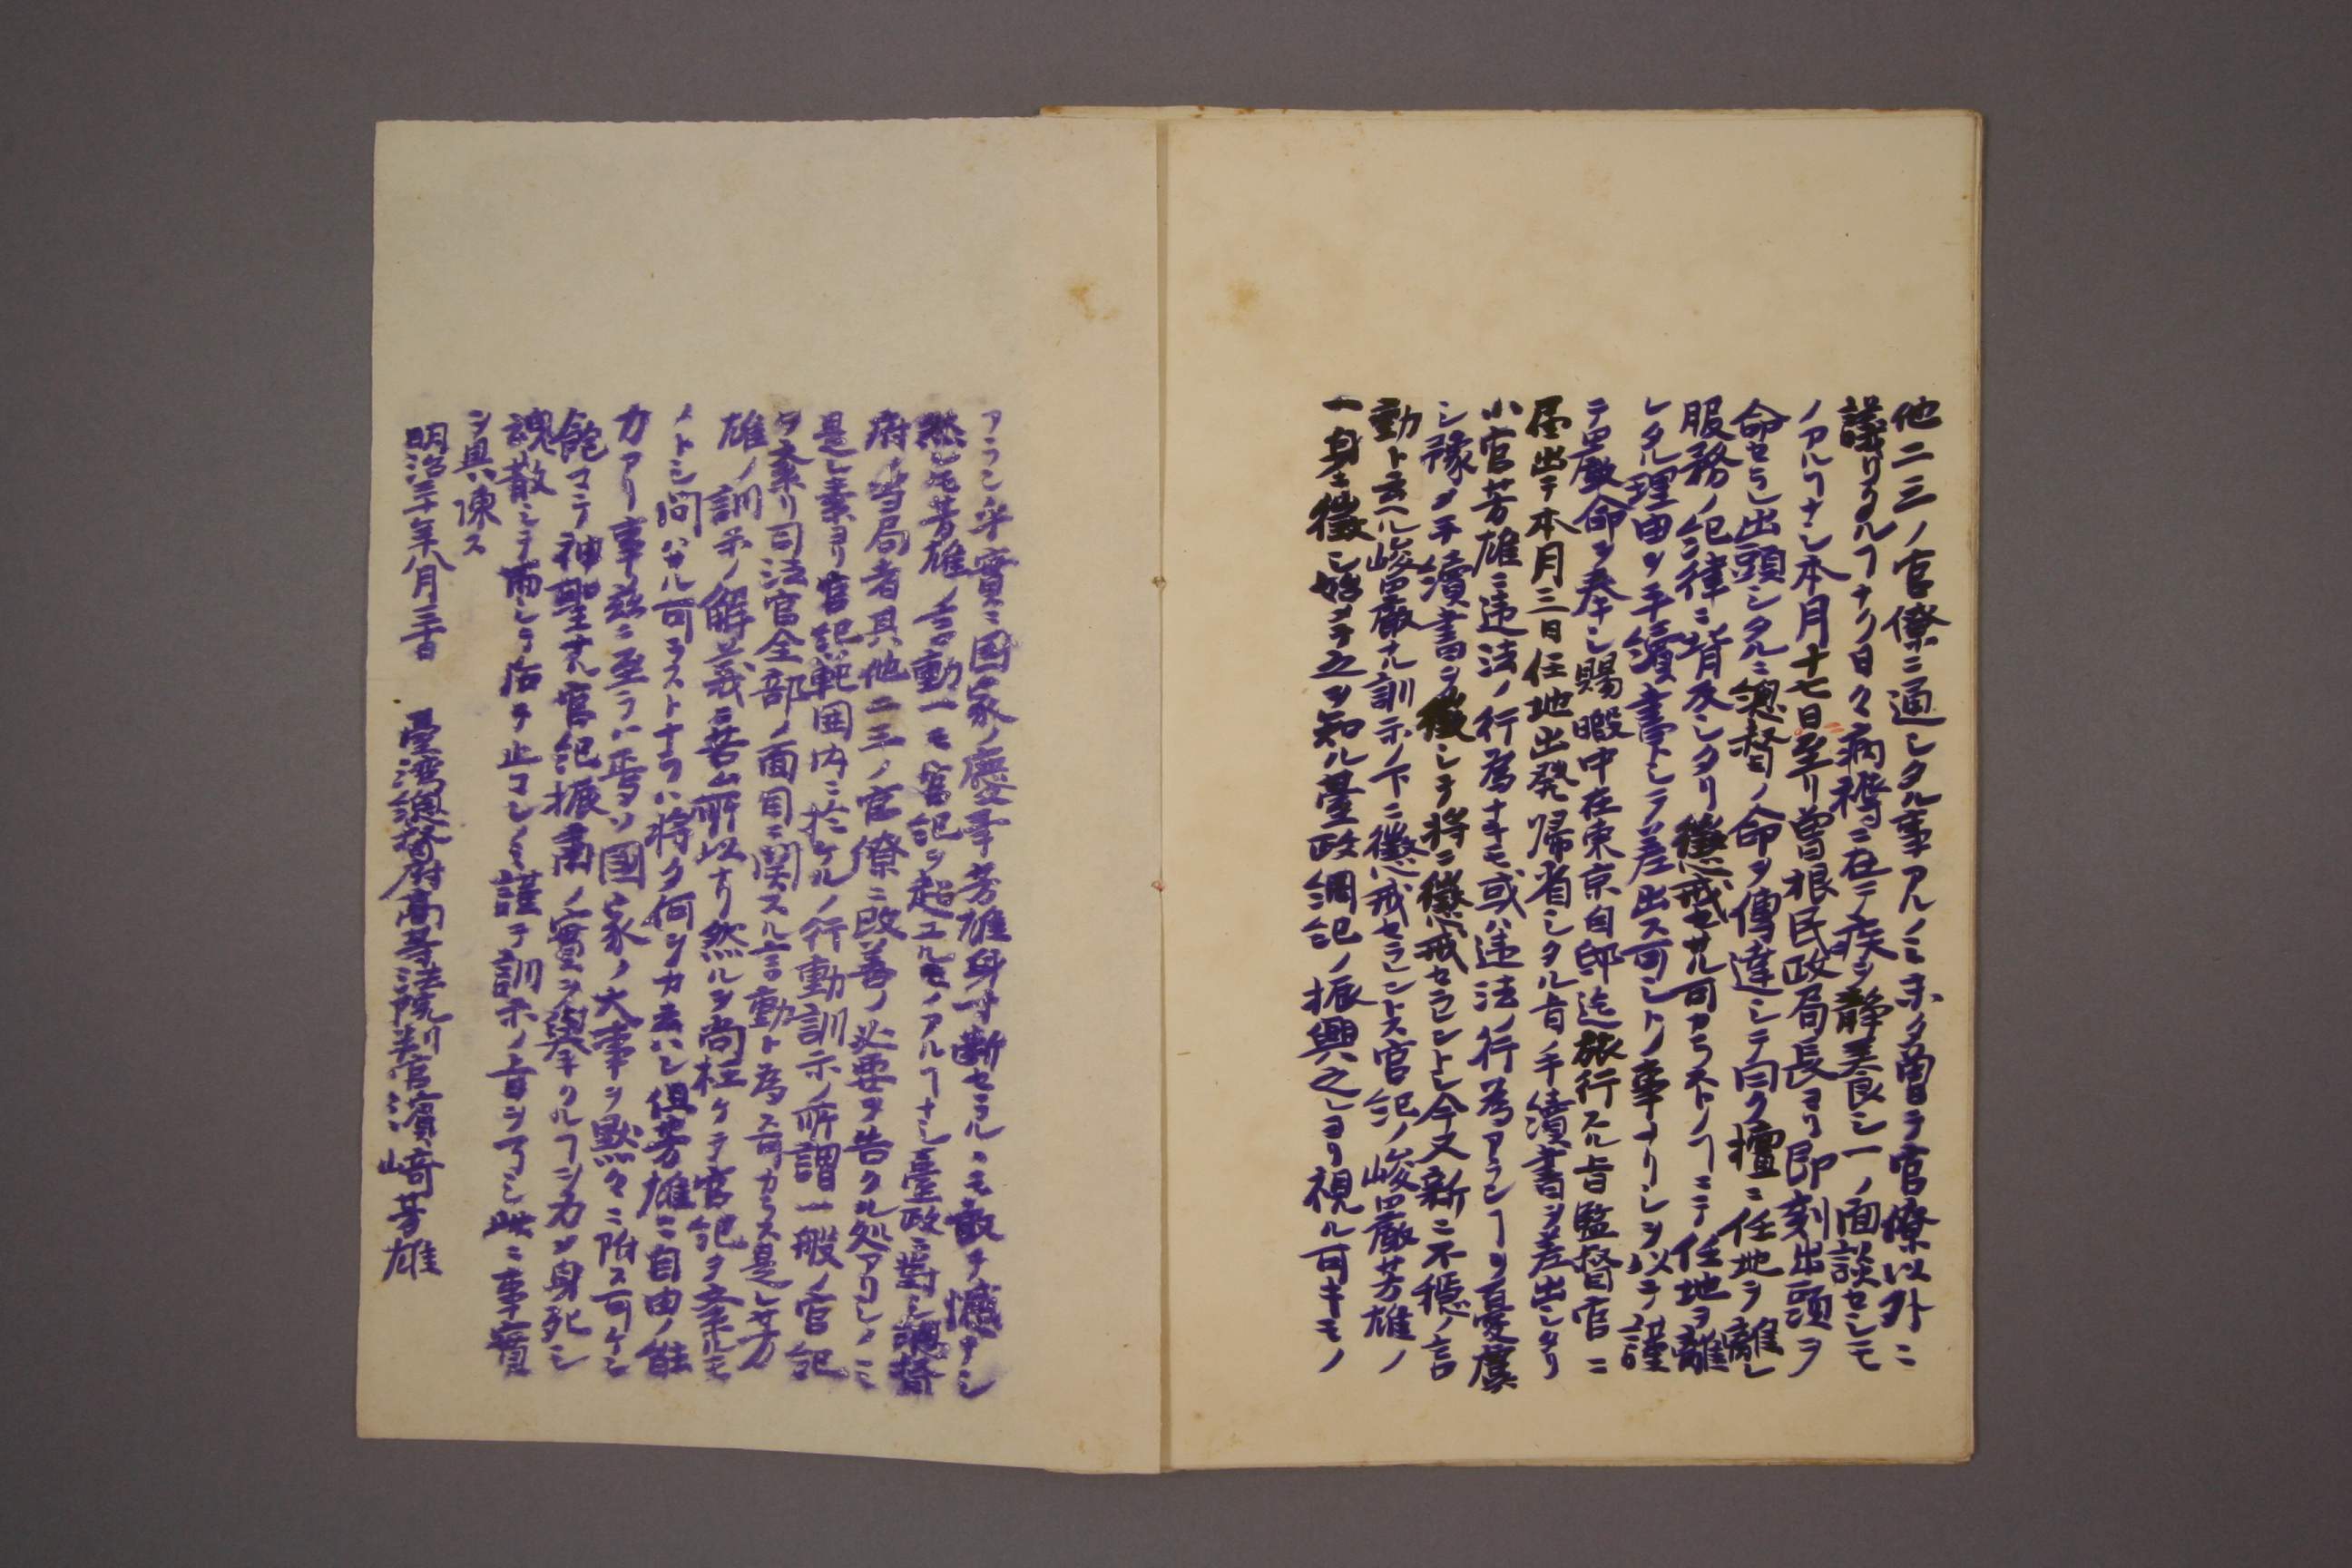 他二三ノ官僚ニ通シタル事アルノミ未タ曽テ官僚以外ニ
議リタルヿナク日々病褥ニ在テ疾ヲ静養シ一ノ面談セシモ
ノアルヿナシ本月十七日至リ曽根民政局長ヨリ即刻出頭ヲ
命セラレ出頭シタルニ總督ノ命ヲ傳達シテ曰ク擅ニ任地ヲ離レ
服務ノ紀律ニ背反シタリ懲戒セサル可カラストノヿニテ任地ヲ離
レタル理由ヲ手續書トシテ差出ス可シトノ事ナリシヲ以テ謹
テ嚴命ヲ奉シ賜暇中在東京自邸迄旅行スル旨監督官ニ
届出テ本月三日任地出発帰省シタル旨ノ手續書ヲ差出シタリ
小官芳雄ニ違法ノ行為ナキモ或ハ違法ノ行為アランヿヲ憂虞
シ豫メ手續書ヲ徴シテ将ニ懲戒セラレントシ今又新ニ不穏ノ言
動ト云ヘル峻嚴ナル訓示ノ下ニ懲戒セラレントス官紀ノ峻嚴芳雄ノ
一身ニ徴シ始メテ之ヲ知ル臺政綱紀ノ振興之レヨリ視ル可キモノ
アラン乎實ニ国家ノ慶幸芳雄身寸断セラルヽモ敢テ憾ナシ
然レ𪜈芳雄ノ言動一モ官紀ヲ超ユルモノアルヿナシ臺政ニ對シ總督
府ノ当局者其他二三ノ官僚ニ改善ノ必要ヲ告クル処アリシノミ
是レ素ヨリ官紀範囲内ニ於ケルノ行動訓示ノ所謂一般ノ官紀
ヲ紊リ司法官全部ノ面目ニ関スル言動ト為ス可カラス是レ芳
雄ノ訓示ノ解義ニ苦ム所以ナリ然ルヲ尚枉ケテ官紀ヲ紊ルモ
ノトシ問ハサル可ラストナラハ将タ何ヲカ云ハン但芳雄ニ自由ノ能
力アリ事茲ニ至ラハ焉ソ國家ノ大事ヲ黙々ニ附ス可ケン
飽マテ神聖ナル官紀振肅ノ實ヲ擧クルヿヲ力メ身死シ
魂散シテ而シテ后チ止マンノミ謹テ訓示ノ旨ヲ了シ此ニ事實
ヲ具陳ス
明治三十年八月三十日 臺湾總督府高等法院判官濱﨑芳雄